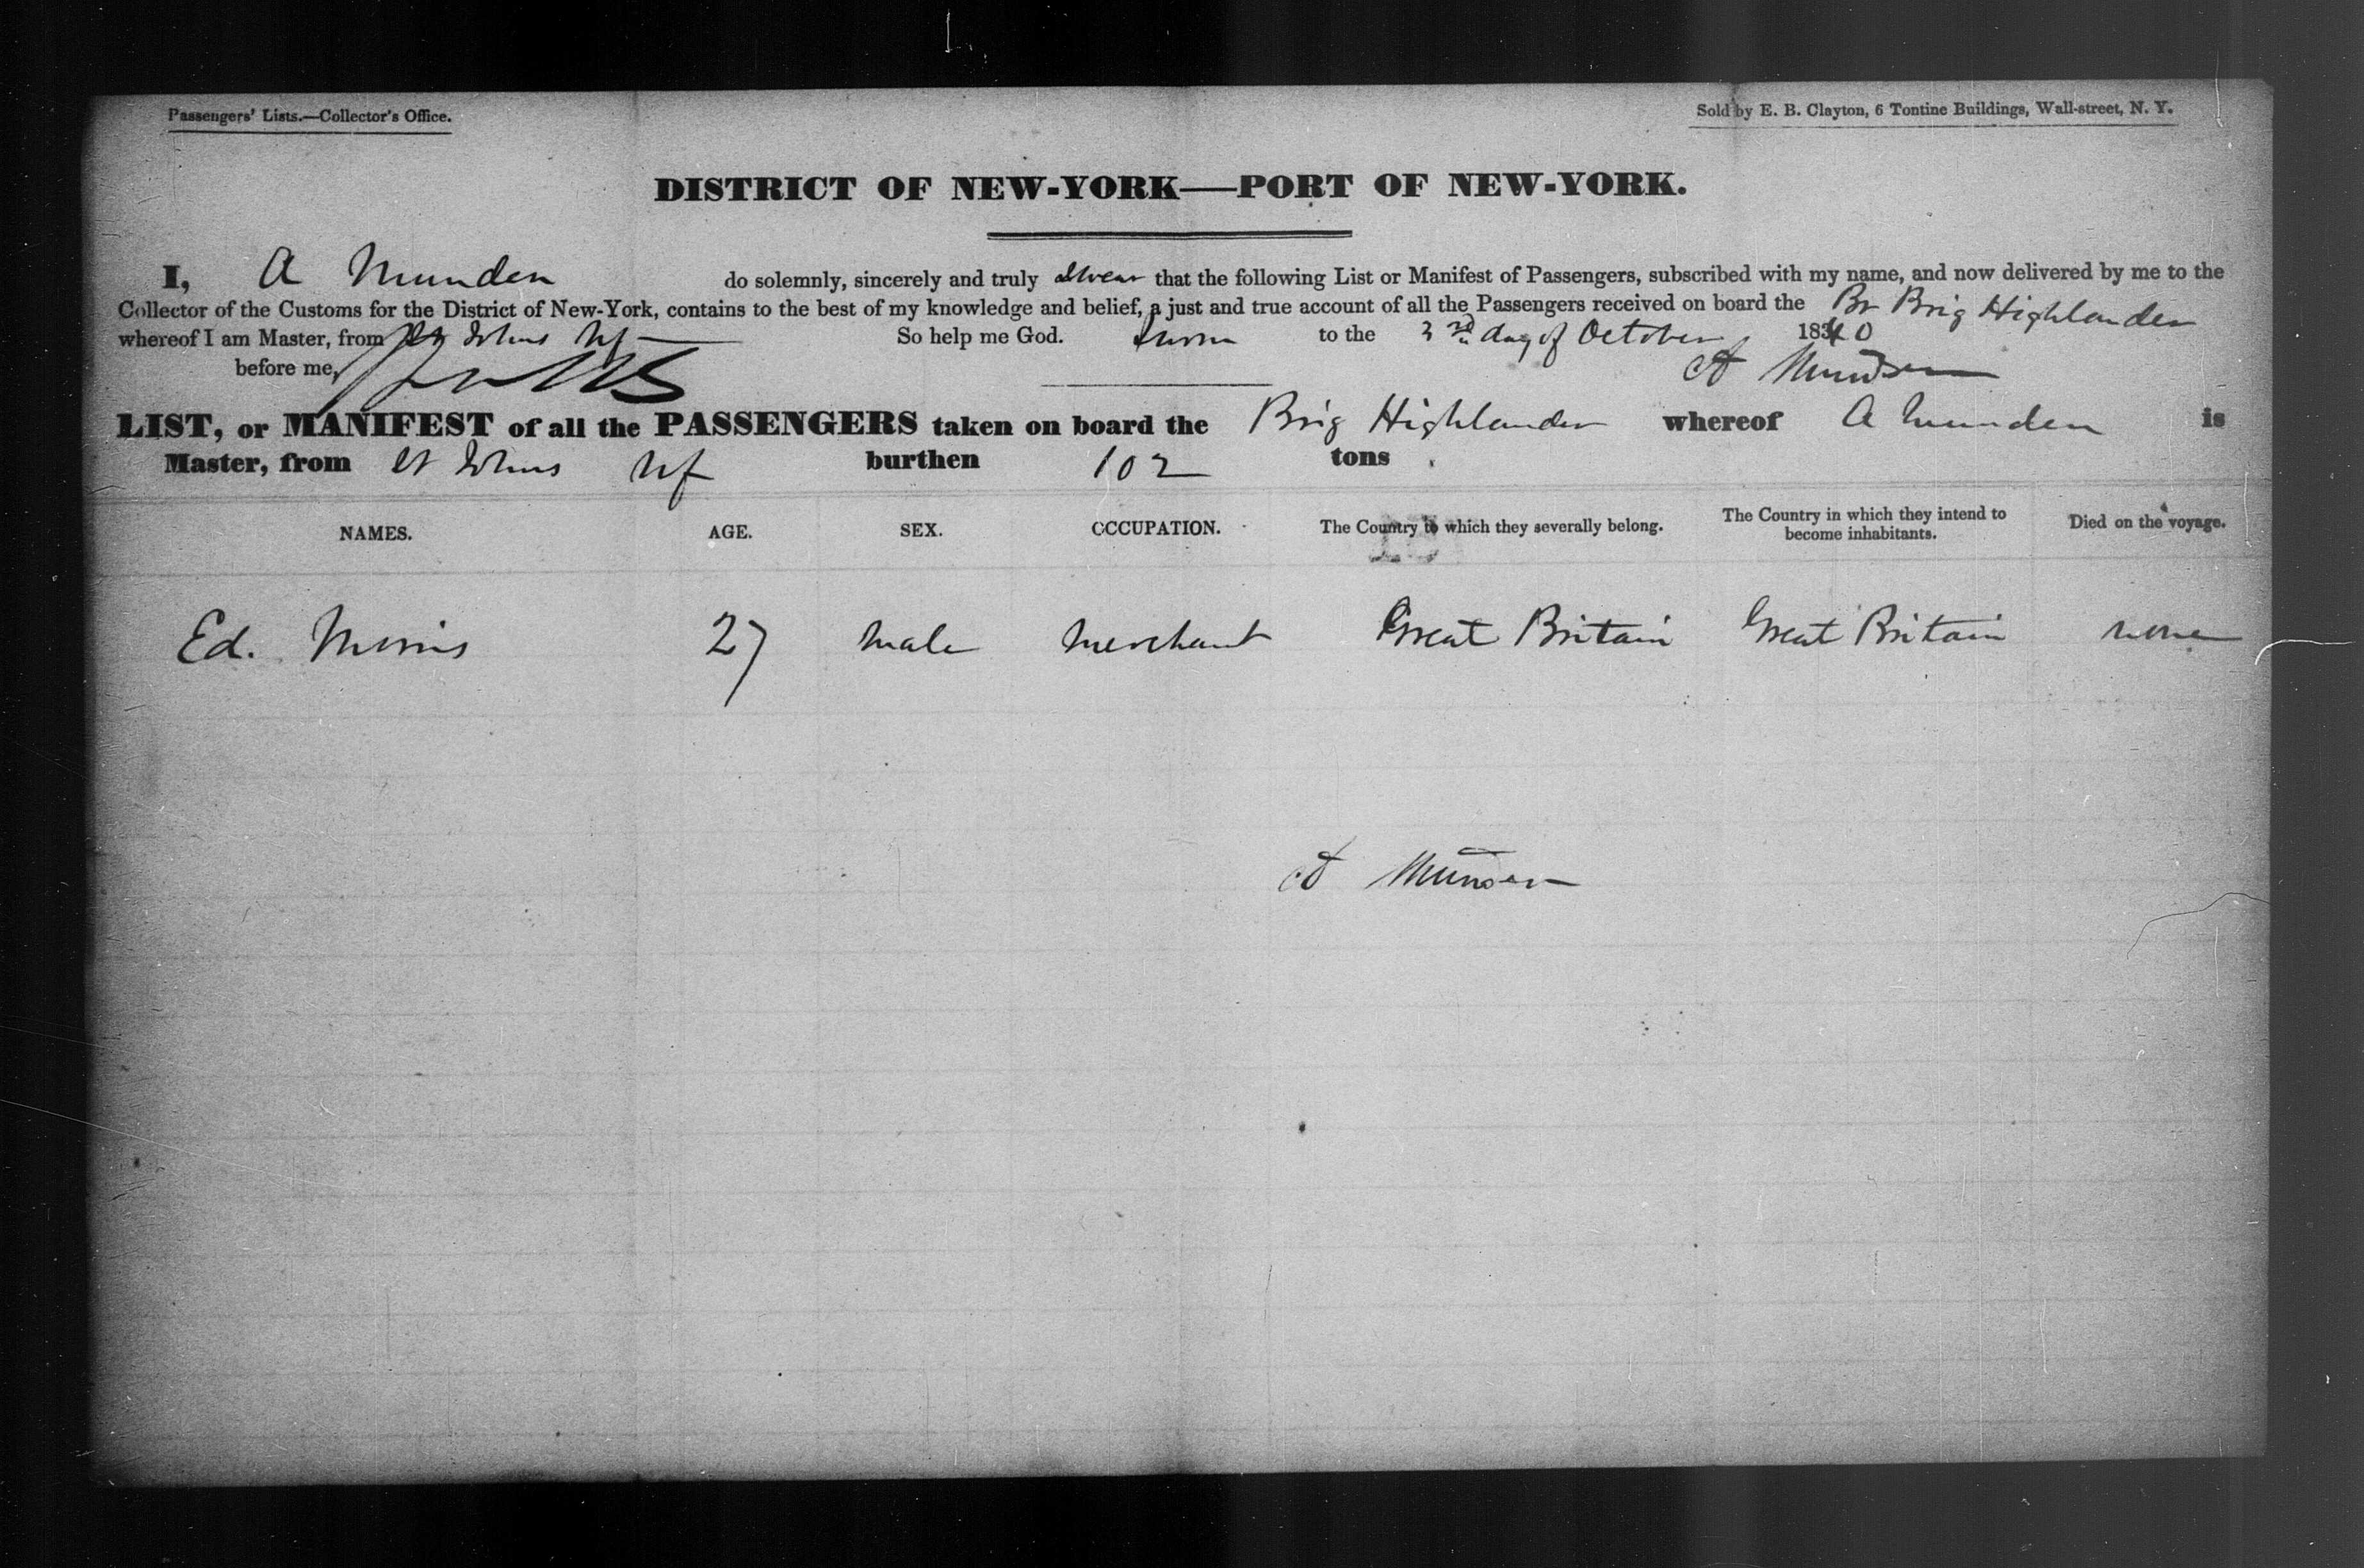 Passengers' Lists.—Collector's Office.
Sold by E. B. Clayton, 6 Tontine Buildings, Wall-street, N. Y.
DISTRICT OF NEW-YORK—PORT OF NEW-YORK.
I, A Munden do solemnly, sincerely and truly swear that the following List or Manifest of Passengers, subscribed with my name, and now delivered by me to the
Collector of the Customs for the District of New-York, contains to the best of my knowledge and belief, a just and true account of all the Passengers received on board the Br Brig Highlander
whereof I am Master, from St Johns Nf So help me God. Sworn to the 3rd day of October 1840
before me, A Munden
LIST, or MANIFEST of all the PASSENGERS taken on board the Brig Highlander whereof A Munden is
Master, from St Johns Nf burthen 102 tons
NAMES. AGE. SEX. OCCUPATION. The Country to which they severally belong. The Country in which they intend to become inhabitants. Died on the voyage.
Ed. Morris 27 male merchant Great Britain Great Britain none
A Munden